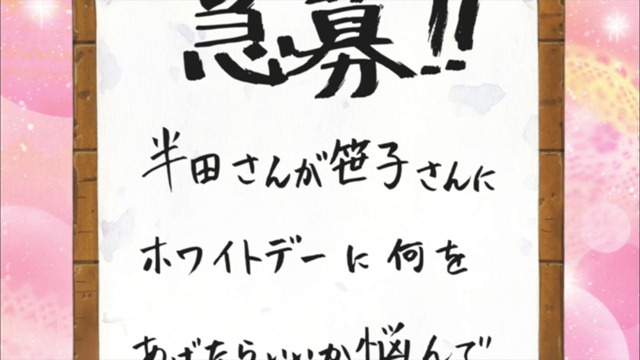 急募!!
半田さんが笹子さんに
ホワイトデーに何を
あげたらいいか悩んで